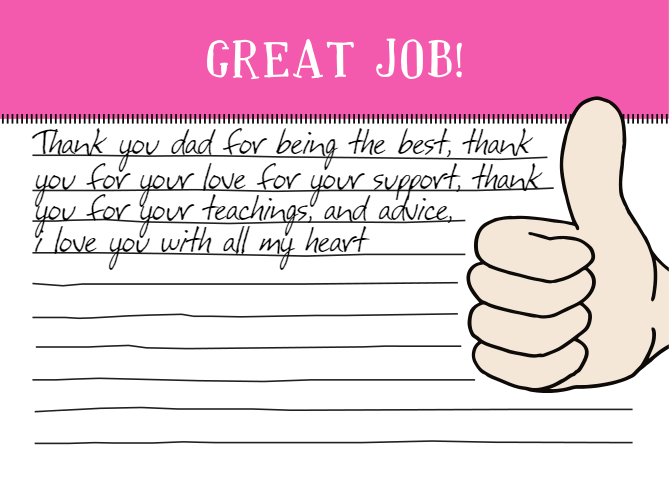 GREAT JOB!
Thank you dad for being the best, thank
you for your love for your support, thank
you for your teachings, and advice,
i love you with all my heart